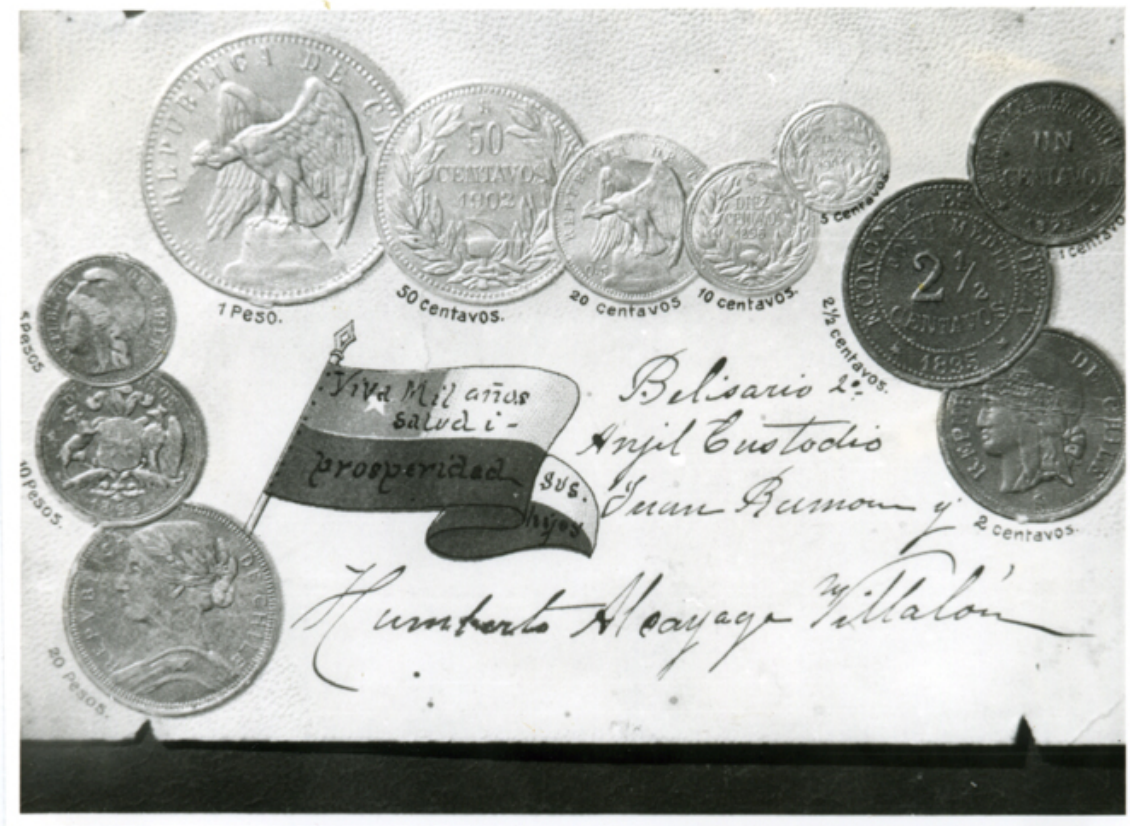 REPUBLICA DE CH
1 Peso.
50
CENTAVOS
1902
50 centavos.
20 centavos
DIEZ
CENTAVOS
10 centavos.
5 centavos.
UN
CENTAVO
1 centavo
ECONOMIA ES
2 1/2
CENTAVOS
1895
2 1/2 centavos.
DE CHILE
2 centavos.
5 Pesos
10 Pesos.
DE CHILE
20 Pesos.
Viva Mil años
salud i-
prosperidad
sus.
hijos
Belisario 2º
Anjil Eustodio
Juan Ramon y
Humberto Alcayaga Villalón